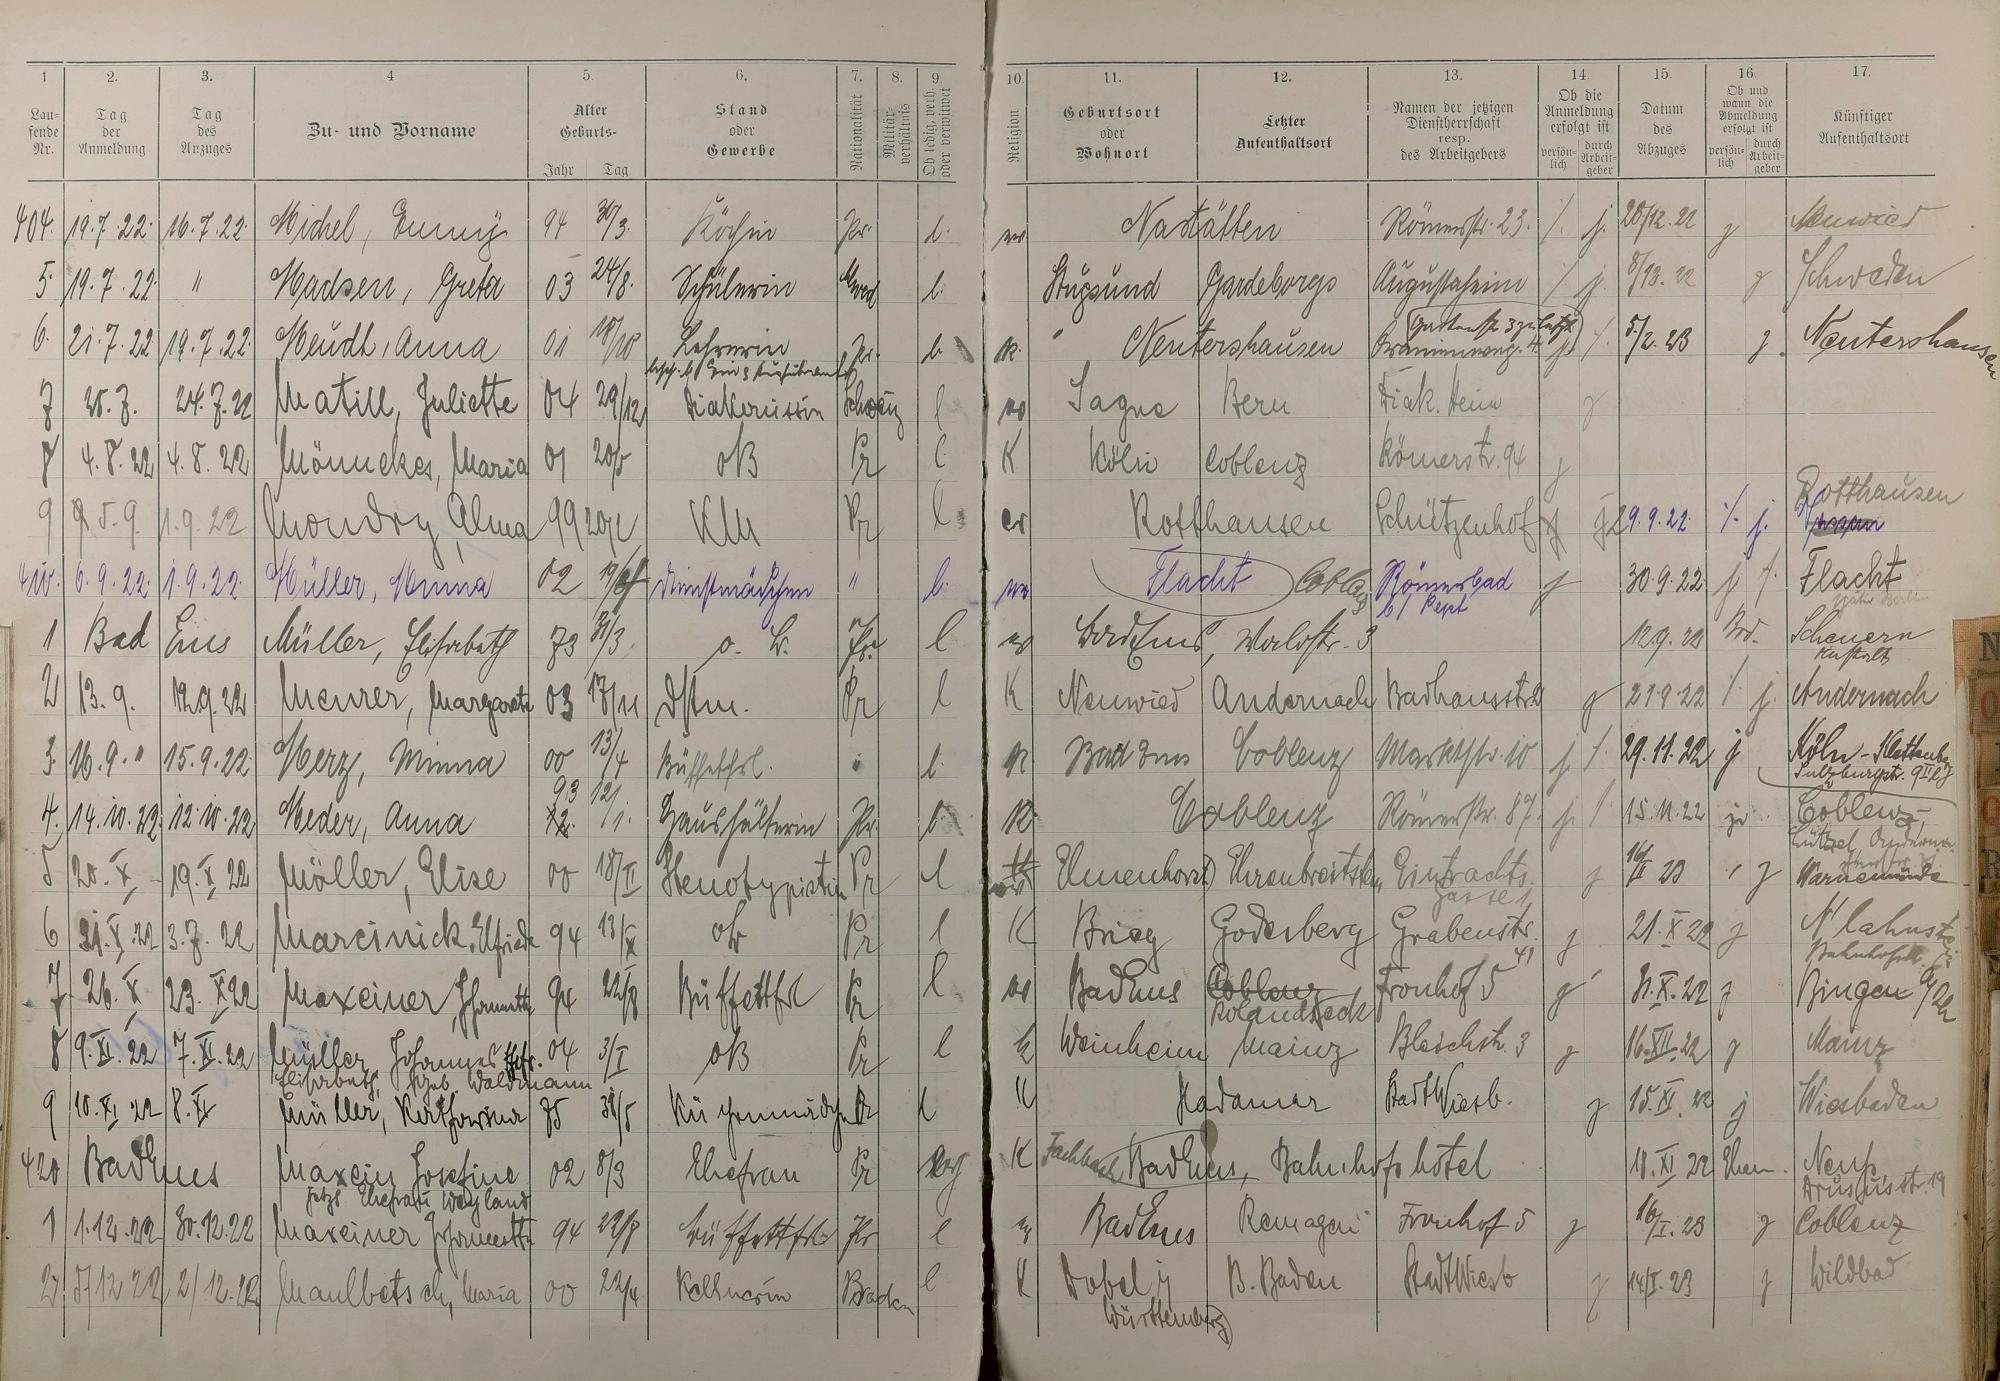 1 2. 3. 4 5. 6. 7. 8. 9. 10. 11. 12. 13. 14. 15. 16. 17.
Lau-fende Nr. Tag der Anmeldung Tag des Anzuges Zu- und Vorname Alter Geburts- Jahr Tag Stand oder Gewerbe Nationalität Militär-verhältnis Ob ledig, verh. oder verwitwet Religion Geburtsort oder Wohnort Letzter Aufenthaltsort Namen der jetzigen Dienstherrschaft resp. des Arbeitgebers Ob die Anmeldung erfolgt ist persön-lich durch Arbeit-geber Datum des Abzuges Ob und wann die Abmeldung erfolgt ist persön-lich durch Arbeit-geber Künftiger Aufenthaltsort
404. 19.7.22. 16.7.22. Michel, Emmy 94 30/3. Köchin Pr. l. Nastätten Römerstr. 23. /. j. 20/12.22 j Neuwied
5. 19.7.22. " Madsen, Greta 03 24/8. Schülerin l. Stugsund Gardeborgs Augustaheim / j. j Schweden
6. 21.7.22 19.7.22. Meudt, Anna 01 18/10 Lehrerin Pr. l. K. Nentershausen 5/2.23 j. Nentershausen
7 24.7.22 Matill, Juliette 04 29/12 Diakonissin Schweiz l Sagne Bern Diak. Heim j
8 4.8.22 4.8.22 Mönnekes, Maria 01 20/5 oB Pr l K Köln Coblenz Römerstr. 94 j
9 5.9. 1.9.22 Mondry, Alma 99 Pr l ev Rotthausen Schützenhof j 29.9.22. /. j. Rotthausen
410. 6.9.22. 1.9.22. Müller, Minna 02 Dienstmädchen " l. Flacht Coblenz Römerbad j 30.9.22 j /. Flacht
1 Bad Ems Müller, Elisabeth 73 31/3 o. B. Pr. l Bad Ems, Waldstr. 3 12.9.22 Scheuern
Anstalt
2 13.9. 12.9.22 Meurer, Margarete 03 17/11 Dstm. Pr l K Neuwied Andernach j 21.9.22 /. j. Andernach
3. 16.9. " 15.9.22. Merz, Minna 00 13/4 Büffetfrl. " l. K. Bad Ems Coblenz Marktstr. 10 j /. 29.11.22 j Köln-Klettenberg
Sülzburgstr.
4. 14.10.22. 12.10.22 Meder, Anna 93 12/1. Haushälterin Pr. l. K Coblenz Römerstr. 87. j. / 15.11.22 Coblenz-
Lützel
5 20.X 19.X.22 Möller, Elise 00 18/II Stenotypistin Pr l Elmenhorst Ehrenbreitstein Eintrachts-
gasse 1 j 23 j Warnemünde
6 3.7.22 Marcinick, Elfriede 94 13/IX oB Pr l K Brieg Godesberg Grabenstr.
41 j 21.X 22 j N'lahnstein
Bahnhofstr.
7 26.X 23.X 22 Maxeiner, 94 22/8 Büffettfrl Pr l Bad Ems Coblenz
Rolandseck Fronhof 5 j 31.X.22 j Bingen
8 9.XI.22 7.XI.22 Müller, Johannes Ehefr. 04 3/I oB Pr l K Weinheim Mainz Bleichstr. 3 j 16.XII.22 j Mainz
Elisabeth, geb. Waldmann
9 10.XI 22 8.XI Müller, Katharina 85 31/5 Küchenmädchen Pr l K Hadamar Stadt Wiesb. j 15.XI.22 j Wiesbaden
420 Bad Ems Maxein Josefine 02 8/3 Ehefrau Pr K Fachbach Bad Ems, Bahnhofshôtel 18.XI 22 Neuss
jetzt Ehefrau Weyland Drususstr. 19
1 1.12.22 30.12.22 Maxeiner 94 22/8 Büffettfrl Pr l Bad Ems Remagen Fronhof 5 j 16/I.23 j Coblenz
2 5/12 22 2/12.22 Maulbetsch, Maria 00 22/4 Kellnerin Baden l K Dobel i/
Württemberg) B. Baden Stadt Wiesb j 14/I.23 j Wildbad